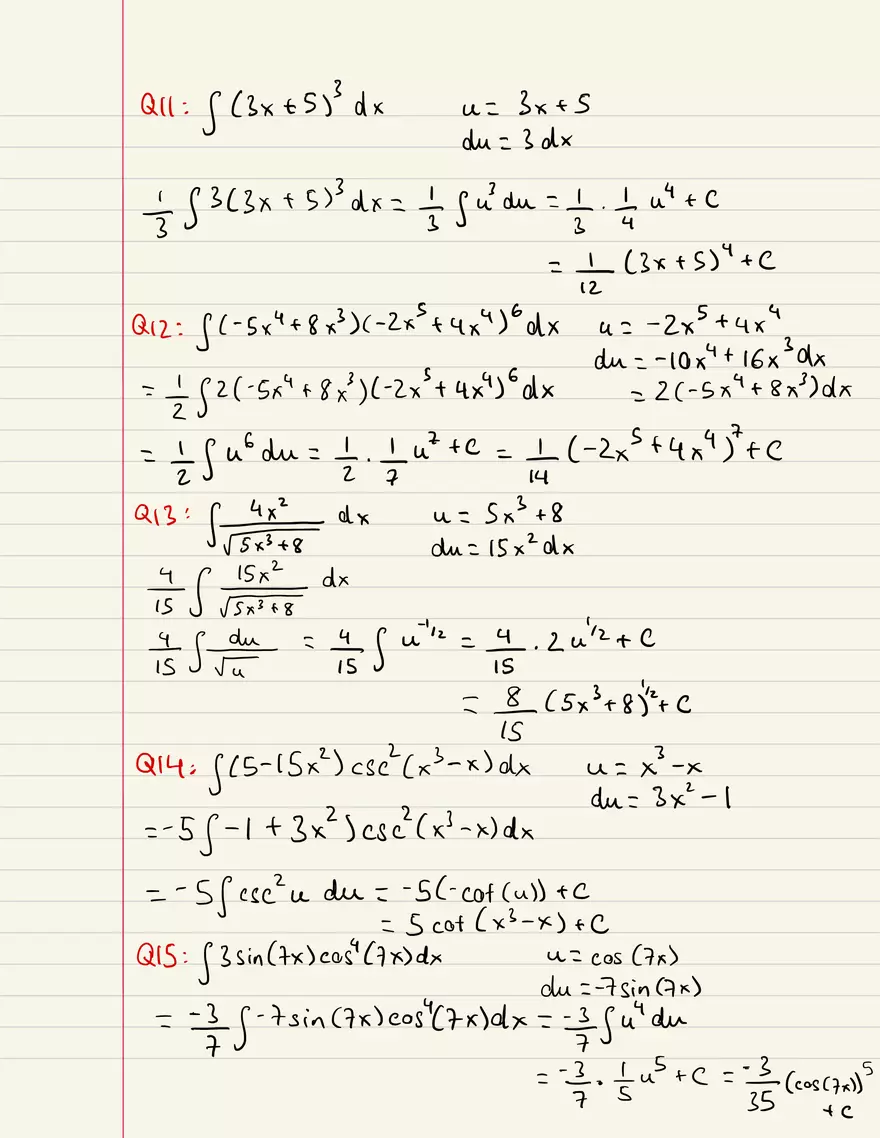 Q11: ∫(3x+5)³ dx u = 3x+5
du = 3 dx
1/3 ∫3(3x+5)³dx = 1/3 ∫u³du = 1/3 · 1/4 u⁴ + C
= 1/12 (3x+5)⁴ + C
Q12: ∫(-5x⁴+8x³)(-2x⁵+4x⁴)⁶dx u = -2x⁵+4x⁴
du = -10x⁴+16x³dx
= 1/2 ∫2(-5x⁴+8x³)(-2x⁵+4x⁴)⁶dx = 2(-5x⁴+8x³)dx
= 1/2 ∫u⁶du = 1/2 · 1/7 u⁷ + C = 1/14 (-2x⁵+4x⁴)⁷ + C
Q13: ∫ 4x²/√(5x³+8) dx u = 5x³+8
du = 15x²dx
4/15 ∫ 15x²/√(5x³+8) dx
4/15 ∫ du/√u = 4/15 ∫ u^(-1/2) = 4/15 · 2u^(1/2) + C
= 8/15 (5x³+8)^(1/2) + C
Q14: ∫(5-15x²)csc²(x³-x)dx u = x³-x
du = 3x²-1
= -5∫-1+3x²)csc²(x³-x)dx
= -5∫csc²u du = -5(-cot(u)) + C
= 5cot(x³-x) + C
Q15: ∫3sin(7x)cos⁴(7x)dx u = cos(7x)
du = -7sin(7x)
= -3/7 ∫-7sin(7x)cos⁴(7x)dx = -3/7 ∫u⁴du
= -3/7 · 1/5 u⁵ + C = -3/35 (cos(7x))⁵
+ C